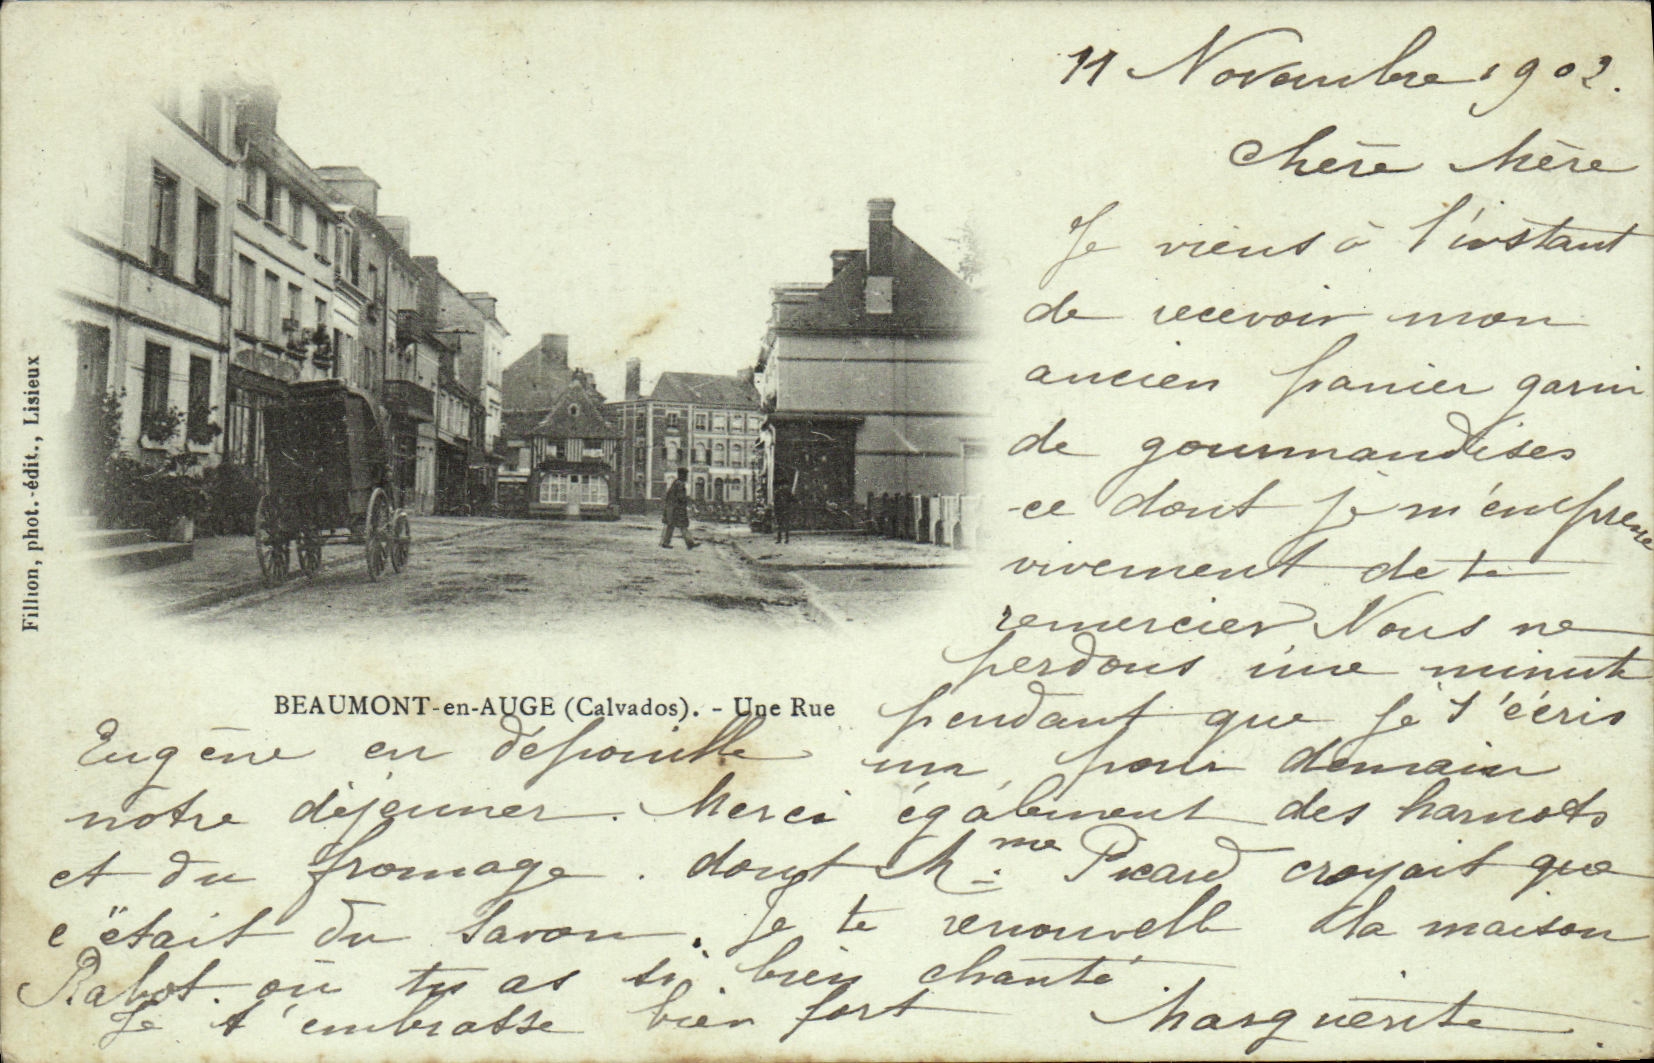 11 Novembre 1902.
Chère Mère
Je viens à l'instant
de recevoir mon
ancien panier garni
de gourmandises
ce dont je m'empresse
vivement de te
remercier Nous ne
perdons une minute
pendant que je t'écris
Eugène en dépouille un pour demain
notre déjeuner. Merci également des haricots
et du fromage. dont Mme Picard croyait que
c'était du savon. Je te renouvelle la maison
Rabot. où tu as si bien chanté
Je t'embrasse bien fort Marguerite
BEAUMONT-en-AUGE (Calvados). - Une Rue
Fillion, phot.-édit., Lisieux